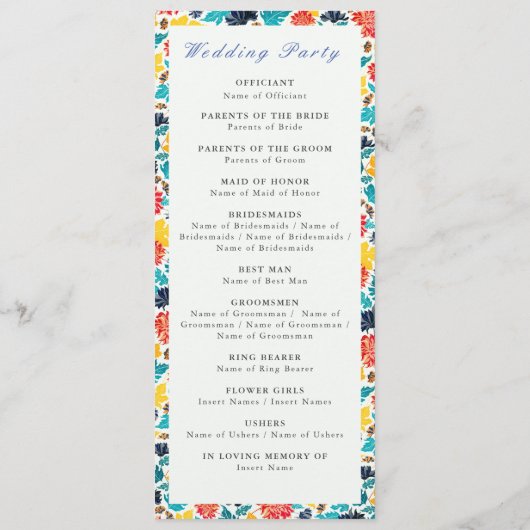 Wedding Party
OFFICIANT
Name of Officiant
PARENTS OF THE BRIDE
Parents of Bride
PARENTS OF THE GROOM
Parents of Groom
MAID OF HONOR
Name of Maid of Honor
BRIDESMAIDS
Name of Bridesmaids / Name of
Bridesmaids / Name of Bridesmaids /
Name of Bridesmaids
BEST MAN
Name of Best Man
GROOMSMEN
Name of Groomsmen / Name of
Groomsmen / Name of Groomsmen /
Name of Groomsmen
RING BEARER
Name of Ring Bearer
FLOWER GIRLS
Insert Names / Insert Names
USHERS
Name of Ushers / Name of Ushers
IN LOVING MEMORY OF
Insert Name